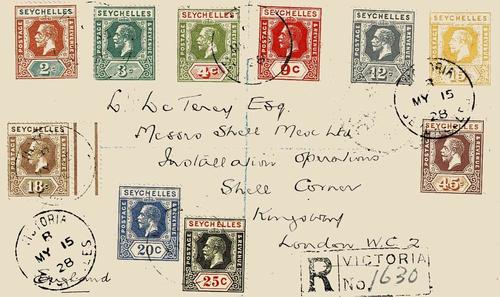 SEYCHELLES
POSTAGE
REVENUE
2c
SEYCHELLES
POSTAGE
REVENUE
3c
SEYCHELLES
POSTAGE
REVENUE
4c
SEYCHELLES
POSTAGE
REVENUE
9c
SEYCHELLES
POSTAGE
REVENUE
12c
VICTORIA
R
MY 15
28
SEYCHELLES
SEYCHELLES
POSTAGE
REVENUE
18c
SEYCHELLES
POSTAGE
REVENUE
45c
Esq.
Messrs Shell Mex Ltd
Installation Operations
Shell Corner
Kingsway
London W.C.2
England
SEYCHELLES
POSTAGE
REVENUE
20c
SEYCHELLES
POSTAGE
REVENUE
25c
VICTORIA
R
MY 15
28
R
VICTORIA
No. 1630